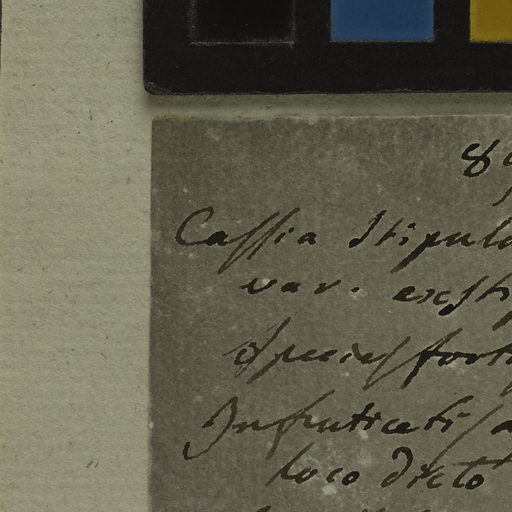 89
Cassia Stipula
var. exsti
Species forte
In fruticeti
loco dicto